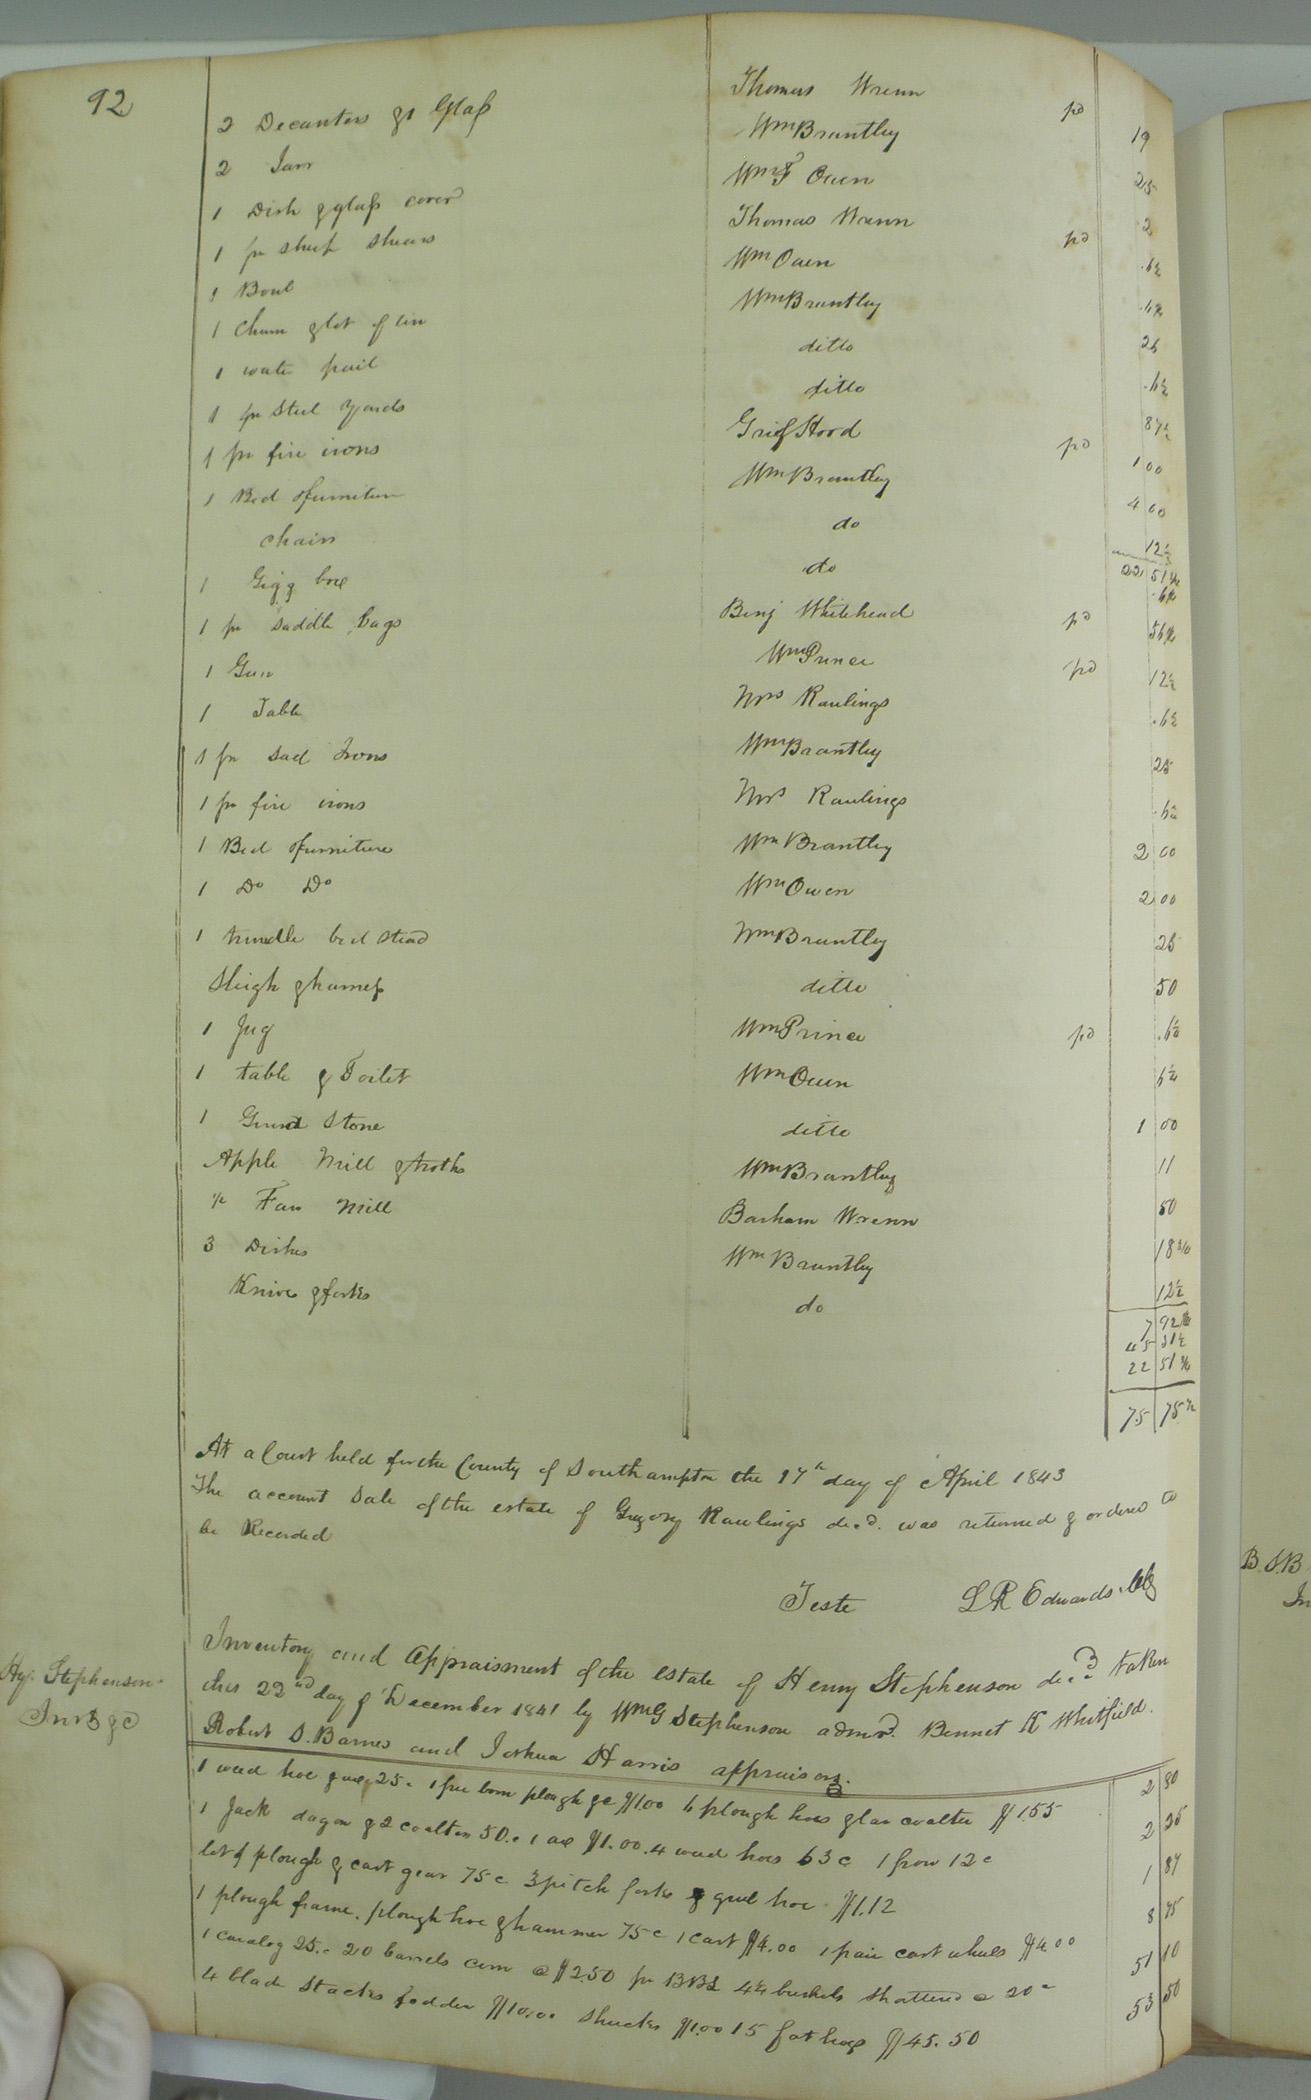 92
2 Decanters & 1 Glass Thomas Wrenn pd 19
2 Jarr WmBrantley 25
1 Dish & glass cover Wm F Owen 2
1 pr sheep shears Thomas Wrenn pd .6¼
1 Boul Wm Owen .6¼
1 Churn & lot of tin WmBrantley 25
1 wate pail ditto .6¼
1 pr Steel Yards ditto 87½
1 pr fire irons Grief Hood pd 1 00
1 Bed & furniture WmBrantley 4 00
chairs do 12½
22 51¾
1 Gigg box do .6¼
1 pr saddle bags Benj Whitehead pd 56¼
1 Gun WmPrince pd 12½
1 Table Mrs Rawlings .6¼
1 pr Sad Irons WmBrantley 25
1 pr fire irons Mrs Rawlings .6¼
1 Bed & furniture Wm Brantley 2 00
1 Do Do WmOwen 2 00
1 trundle bed stead WmBrantley 25
Sleigh & harness ditto 50
1 Jug WmPrince pd .6¼
1 table & Toilet WmOwen 6¼
1 Grind Stone ditto 1 00
Apple Mill & troths WmBrantley 11
½ Fan Mill Barham Wrenn 50
3 Dishes Wm Brantley 18¾
Knives & forks do 12½
7 92
45 31½
22 51¾
75 75½
At a Court held for the County of Southampton the 17th day of April 1843
The account Sale of the estate of Gregory Rawlings decd. was returned & ordered to
be Recorded
Teste L R Edwards. Clk
Hy. Stephenson
Invt &c
Inventory and Appraisment of the estate of Henry Stephenson decd taken
this 22nd day of December 1841 by WmG Stephenson admr. Bennet K Whitfield.
Robert S. Barnes and Joshua Harris appraisors.
1 weed hoe & axe 25c 1 free born plough &c $1.00 6 plough hoes & lar coalter $1.55 2 80
1 Jack dagon & 2 coalters 50c 1 axe $1.00. 4 weed hoes 63c 1 frow 12c 2 25
lot of plough & cart gear 75c 3 pitch forks & grub hoe $1.12 1 87
1 plough frame, plough hoe & hammer 75c 1 cart $4.00 1 pair cart wheels $4.00 8 75
1 Caralog 25c 20 barrels corn @ $2.50 pr BBL 4½ bushels shattered @ 20c 51 10
4 blade stacks fodder $10.00 shucks $1.00 15 fat hogs $45.50 53 50
B.S.B
In